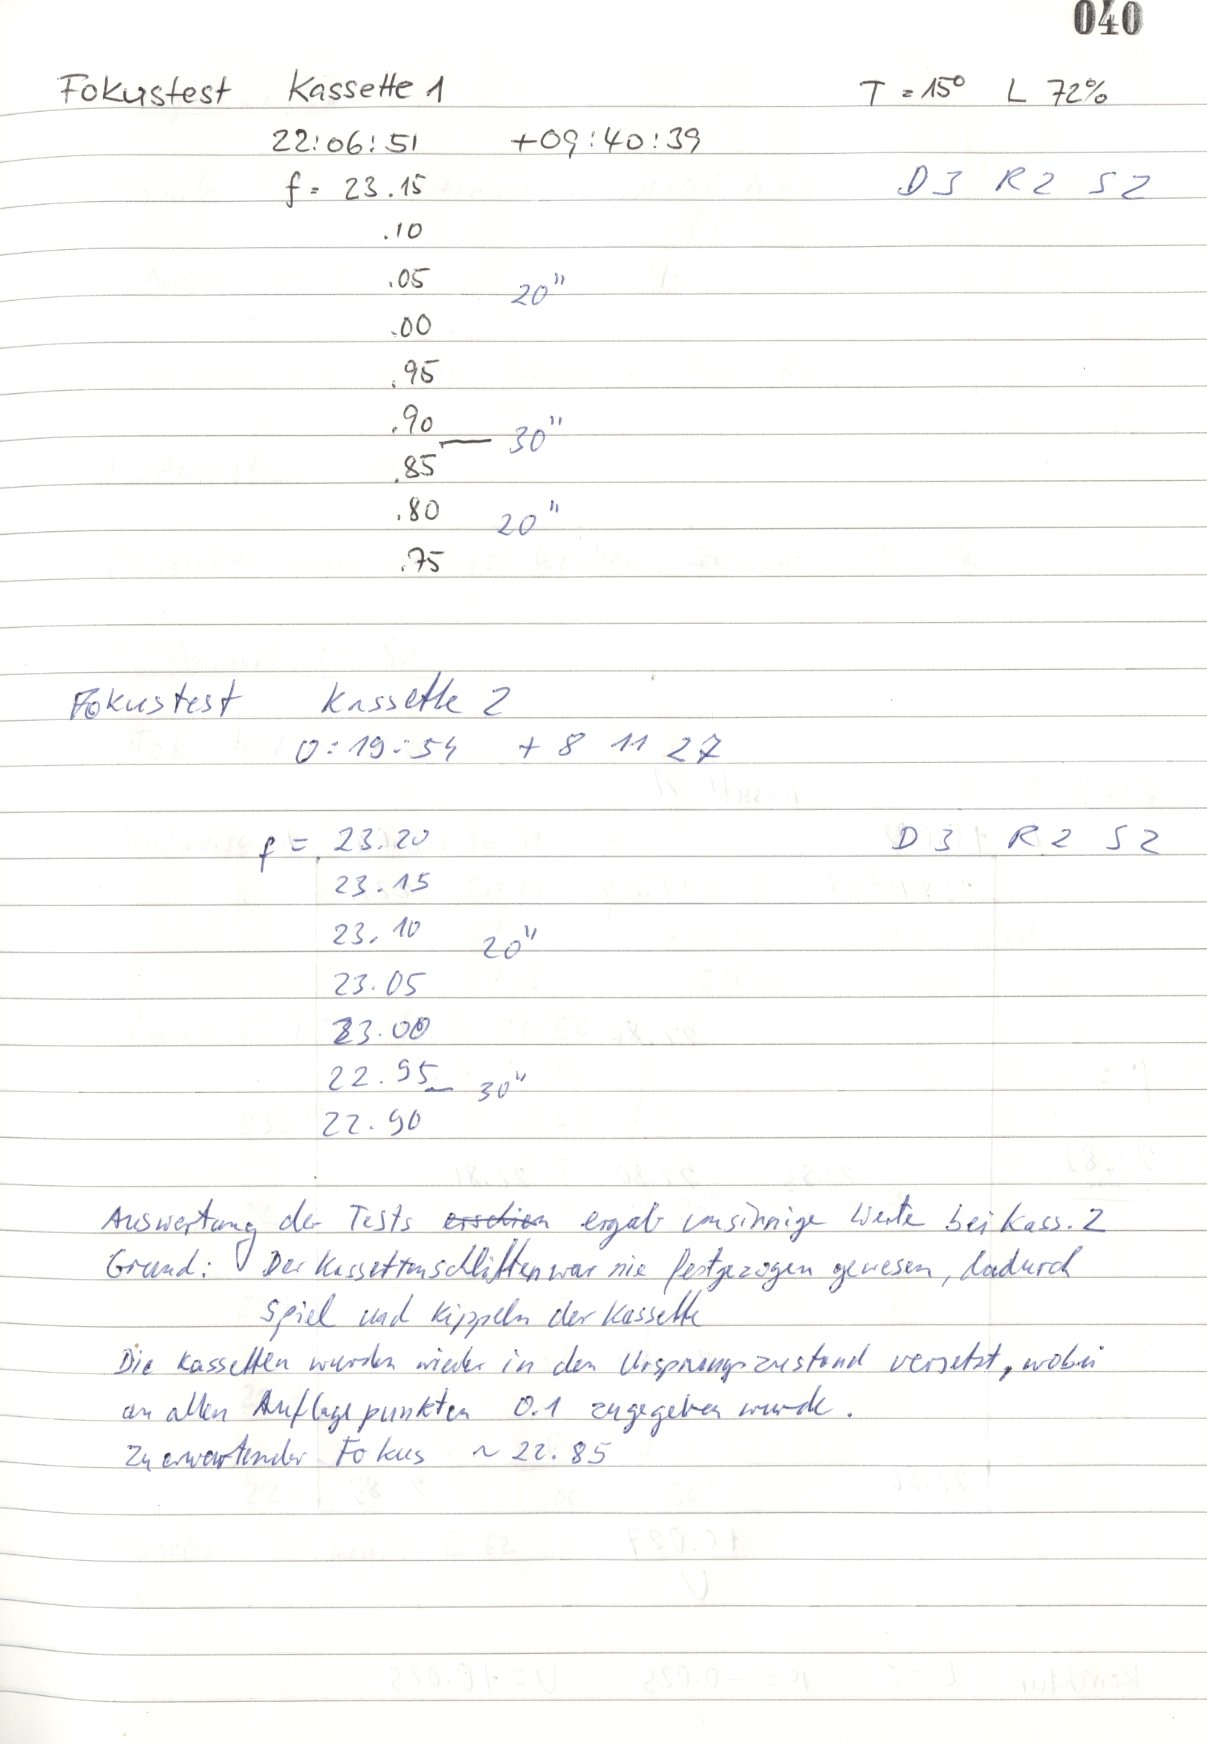 040
Fokustest Kassette 1 T = 15° L 72%
22:06:51 +09:40:39
f = 23.15 D 3 R 2 S 2
.10
.05 20"
.00
.95
.90
— 30"
.85
.80 20"
.75
Fokustest Kassette 2
0:19:54 + 8 11 27
f = 23.20 D 3 R 2 S 2
23.15
23.10 20"
23.05
23.00
22.95 — 30"
22.90
Auswertung der Tests erschien ergab unsinnige Werte bei Kass. 2
Grund: Der Kassettenschlitten war nie festgezogen gewesen, dadurch
Spiel und Kippeln der Kassette
Die Kassetten wurden wieder in den Ursprungszustand versetzt, wobei
an allen Auflagepunkten 0.1 zugegeben wurde.
Zu erwartender Fokus ~ 22.85